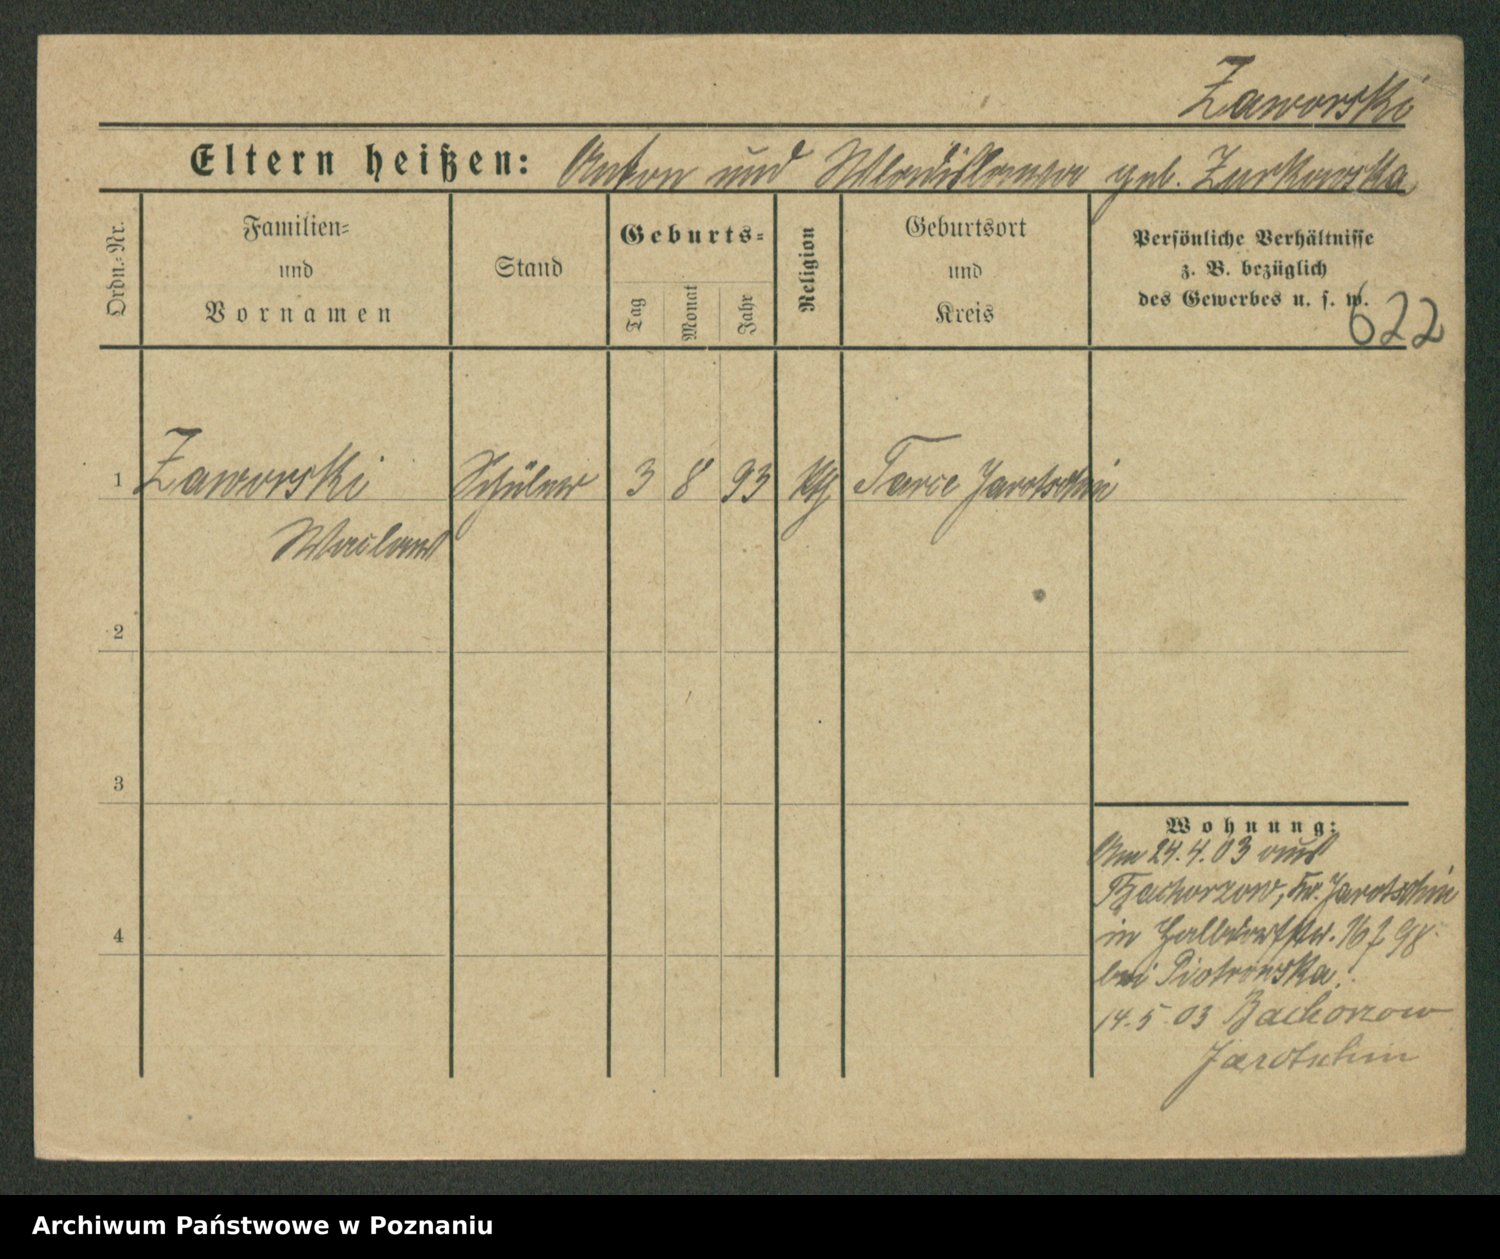 Zaworski
Eltern heißen: Anton und Wladislawa geb. Zurkowska
Ordn.-Nr.
Familien-
und
Vornamen
Stand
Geburts-
Tag
Monat
Jahr
Religion
Geburtsort
und
Kreis
Persönliche Verhältnisse
z. B. bezüglich
des Gewerbes u. s. w.
622
1 Zaworski Schüler 3 8 93 Tarce Jarotschin
Waclaw
2
3
4
Wohnung:
Am 24.4.03 aus
Bachorzow, Kr. Jarotschin
in Halbdorfstr.
bei Piotrowska.
14.5.03 Bachorzow
Jarotschin
Archiwum Państwowe w Poznaniu